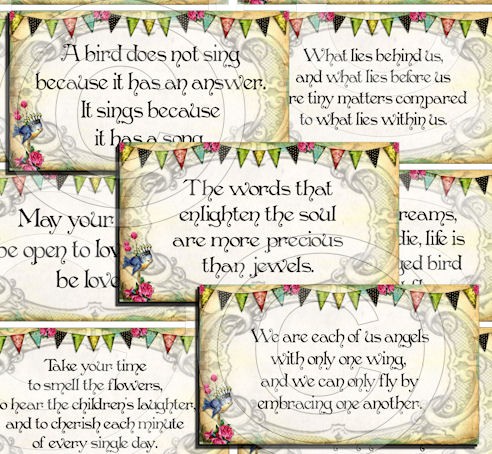 A bird does not sing
because it has an answer.
It sings because
it has a song
What lies behind us,
and what lies before us
re tiny matters compared
to what lies within us.
The words that
enlighten the soul
are more precious
than jewels.
May your
be open to lov
be love
reams,
die, life is
ged bird
We are each of us angels
with only one wing,
and we can only fly by
embracing one another.
Take your time
to smell the flowers,
o hear the children's laughter,
and to cherish each minute
of every single day.